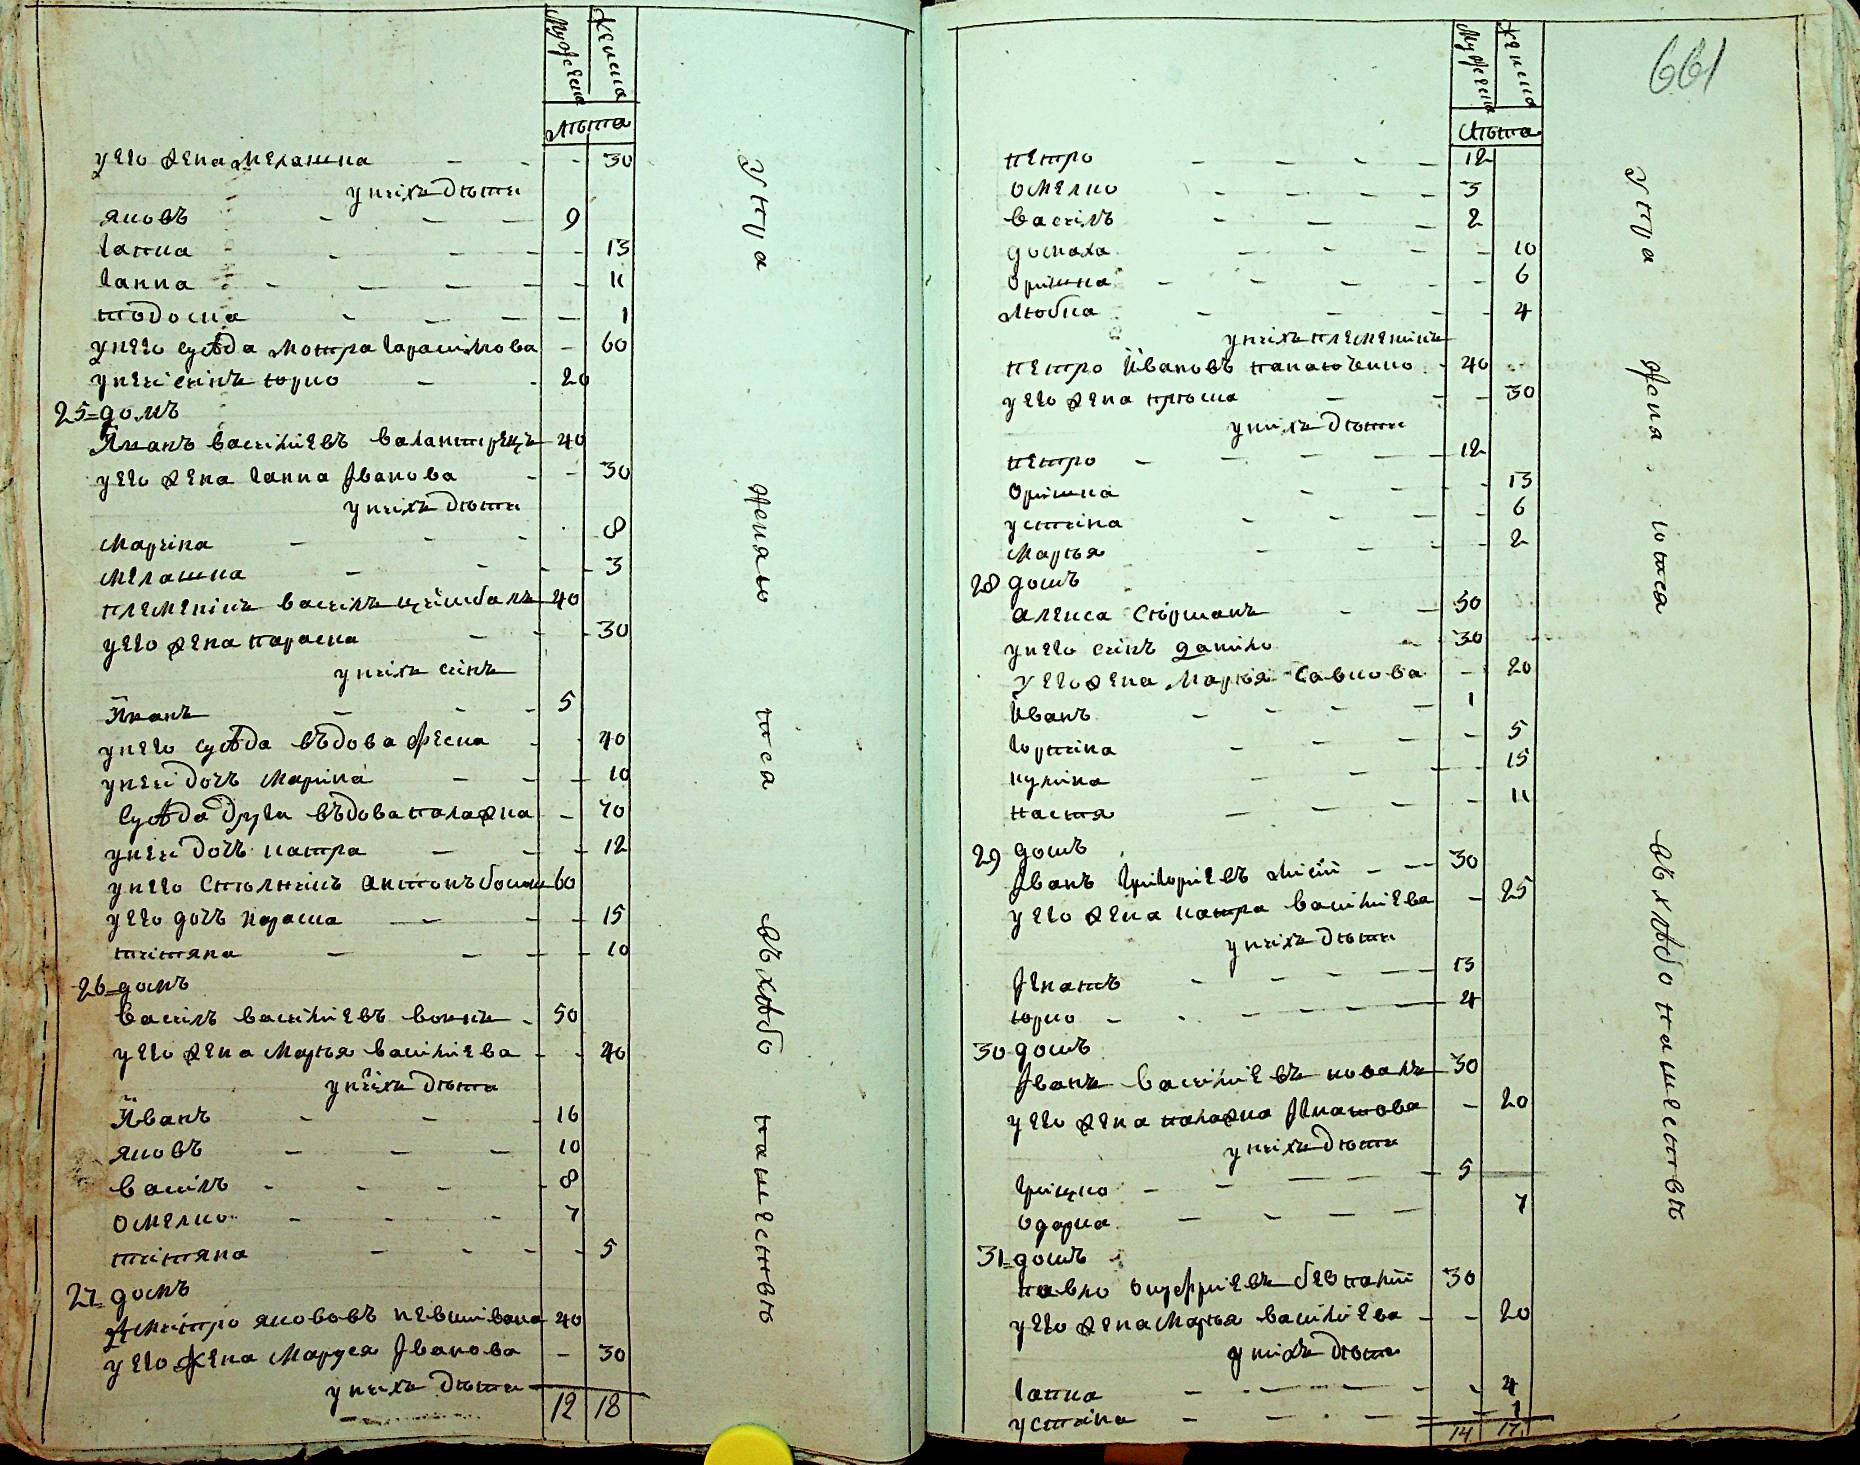 Мужеска Женска
Лѣта
у его жена Мелашка - - - 30
у нихъ дѣти
Яковъ - - - 9
Гапка - - - 13
Ганна - - - 11
Тодоска - - - 1
у него сусѣда Мотра Гарасимова - 60
у неи синъ Юрко - - 20
25 домъ
Иванъ Васильевъ 40
у его жена Ганна Иванова - - 30
у нихъ дѣти
Марина - - - 8
Мелашка - - - 3
племѣникъ Василь 40
у его жена Параска - - 30
у нихъ синъ
Иванъ - - - 5
у него сусѣда въдова Феска - 40
у неи дочъ Марина - - 10
сусѣда друга въдова Палажка - 70
у неи дочъ Катра - - 12
у него Антонъ 60
у его дочъ Параска - - 15
Титяна - - - 10
26 домъ
Василъ Васильевъ - 50
у его жена Марья Васильева - - 40
у нихъ дѣти
Иванъ - - - 16
Яковъ - - - 10
Василъ - - - 8
Омелко - - - 7
Титяна - - - 5
27 домъ
Дмитро Якововъ 40
у его жена Маруся Иванова - 30
у нихъ дѣти
12 18
У пуа
женяю
писа
въ хлѣбо
пашествѣ
661
Мужеска Женска
Лѣта
Петро - - - - 12
Омелко - - - - 3
Василъ - - - - 2
Домаха - - - - 10
Оришка - - - - 6
Любка - - - - 4
у нихъ племѣникъ
Петро Ивановъ - 40
у его жена Приска - - 30
у нихъ дѣти
Петро - - - - 12
Оришка - - - 13
Устина - - - 6
Марья - - - 2
28 домъ
Алекса - - 50
у него синъ Данило - 30
у его жена Марья Савкова - 20
Иванъ - - - - 1
Горпина - - - 5
Кулина - - - 15
Настя - - - 11
29 домъ
Иванъ Григориевъ - - 30
у его жена Катра Васильева - 25
у нихъ дѣти
Игнатъ - - - 13
Юрко - - - 4
30 домъ
Иванъ Васильевъ Коваль 30
у его жена Палажка Игнатова - 20
у нихъ дѣти
Грицко - - - - 5
Одарка - - - - 7
31 домъ
Павло Онуфриевъ 30
у его жена Марья Васильева - - 20
у нихъ дѣти
Гапка - - - - 4
Устина - - - - 1
14 17
У пуа
женя
юписа
въ хлѣбо пашествѣ